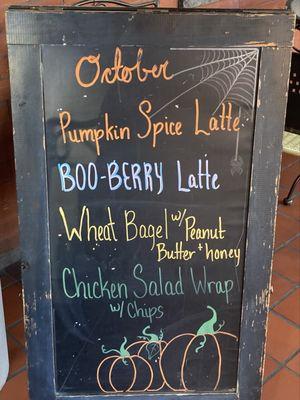 October
Pumpkin Spice Latte
BOO-BERRY Latte
Wheat Bagel w/ Peanut
Butter + honey
Chicken Salad Wrap
w/ Chips